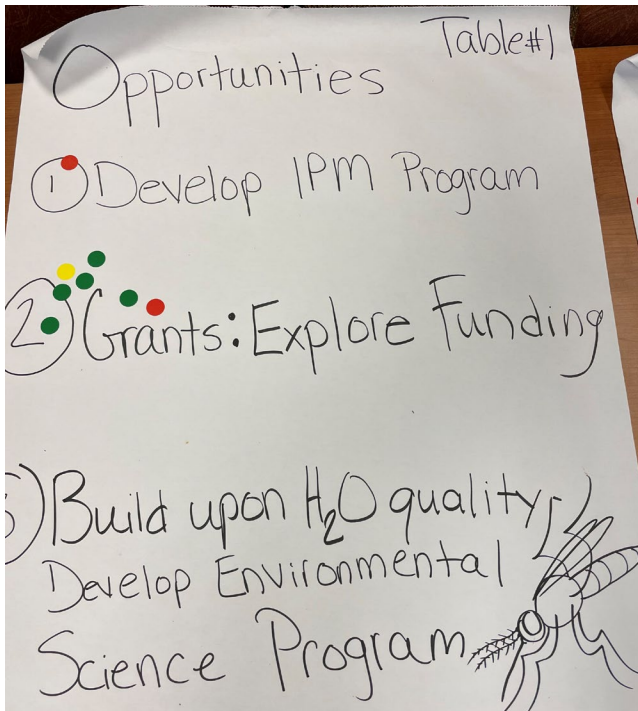 Table#1
Opportunities
1 Develop IPM Program
2 Grants: Explore Funding
Build upon H₂O quality
Develop Environmental
Science Program